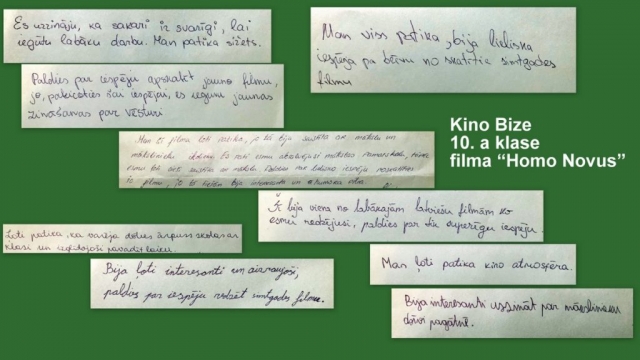 Es uzzināju, ka sakari ir svarīgi, lai
iegūtu labāku darbu. Man patika sižets.
Man viss patika, bija lieliska
iespēja pa brīvu noskatīties simtgades
filmu
Paldies par iespēju apskatīt jauno filmu,
jo, pateicoties šai iespējai, es ieguvu jaunas
zināšanas par vēsturi
Kino Bize
10. a klase
filma “Homo Novus”
Man šī filma ļoti patika, jo tā bija saistīta ar mākslu un
mākslinieku dzīvi.
Šī bija viena no labākajām latviešu filmām ko
esmu redzējusi, paldies par tik superīgu iespēju
Ļoti patika, ka varēja doties ārpus skolas ar
klasi un izglītojoši pavadīt laiku.
Man ļoti patika kino atmosfēra.
Bija ļoti interesanti un aizraujoši,
paldies par iespēju redzēt simtgades filmu.
Bija interesanti uzzināt par māksliniekiem
dzīvi pagātnē.